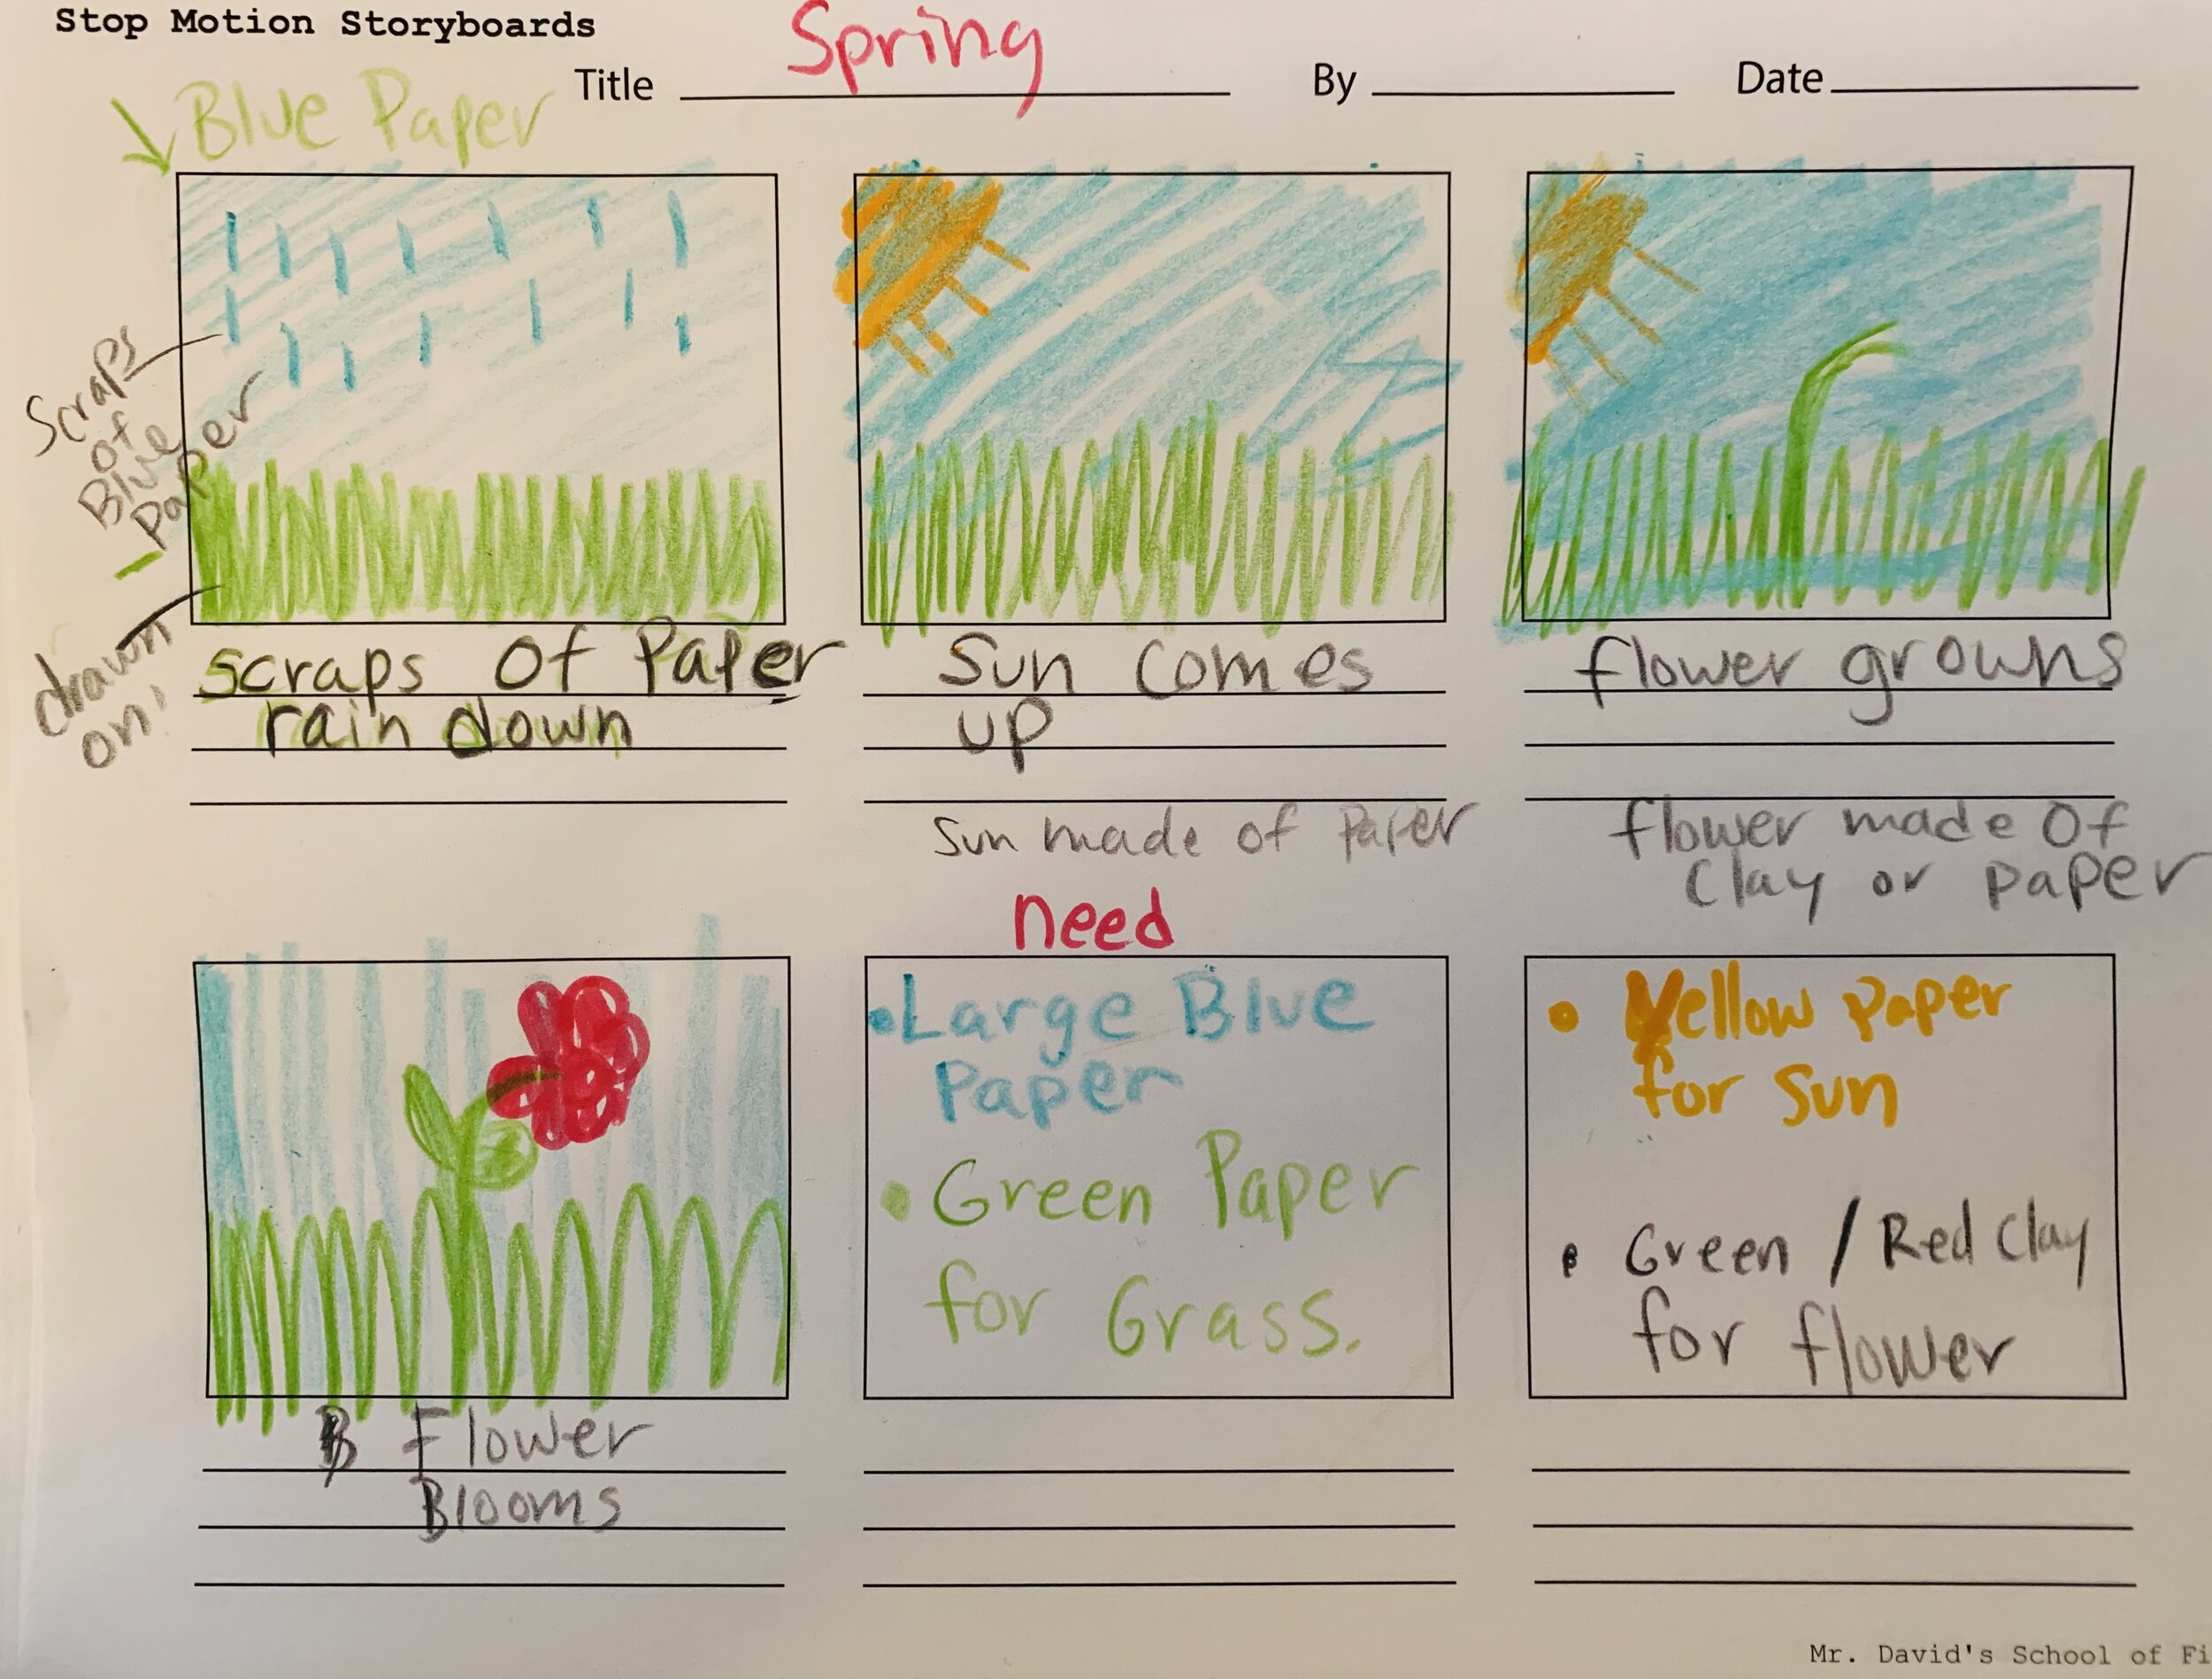 Stop Motion Storyboards
Title Spring By Date
Blue Paper
Scraps
of
Blue
Paper
drawn
on!
scraps of Paper
rain down
Sun comes
up
Sun made of Paper
flower growns
flower made of
Clay or paper
Flower
Blooms
need
• Large Blue
Paper
• Green Paper
for Grass.
• Yellow paper
for Sun
• Green / Red Clay
for flower
Mr. David's School of Fi